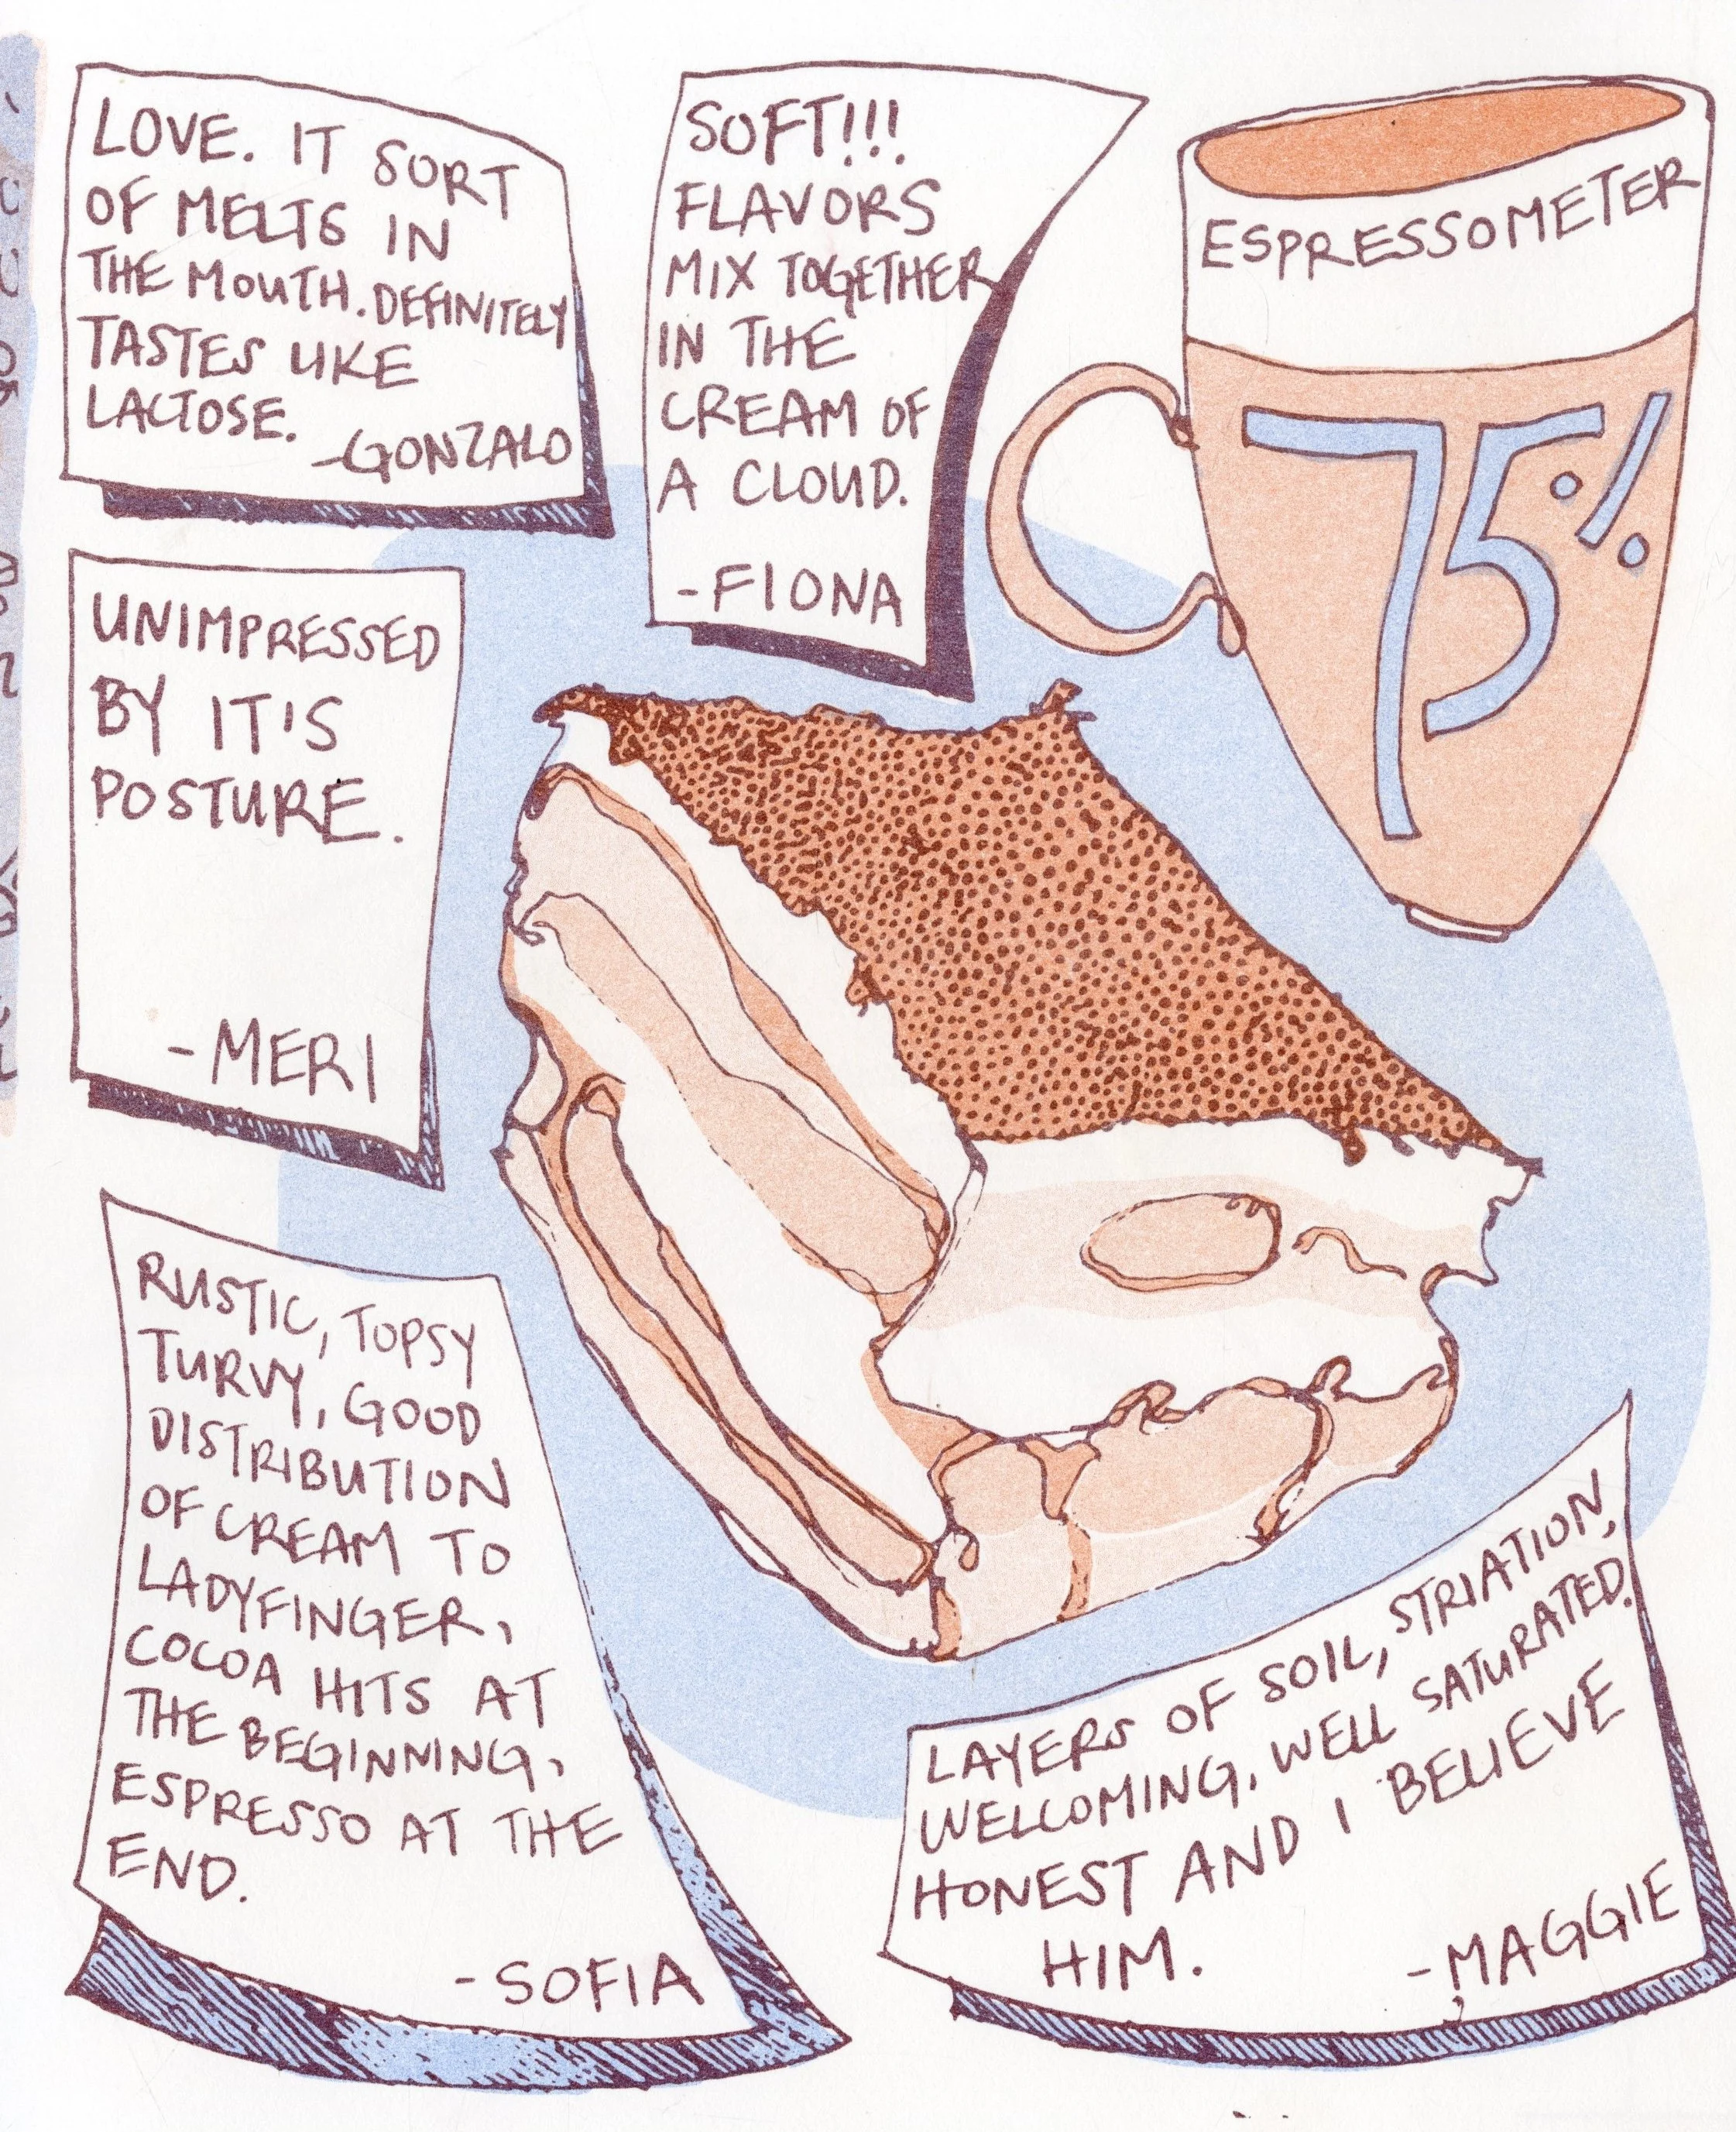 LOVE. IT SORT
OF MELTS IN
THE MOUTH. DEFINITELY
TASTES LIKE
LACTOSE.
-GONZALO
SOFT!!!
FLAVORS
MIX TOGETHER
IN THE
CREAM OF
A CLOUD.
-FIONA
ESPRESSOMETER
75%
UNIMPRESSED
BY IT'S
POSTURE.
-MERI
RUSTIC, TOPSY
TURVY, GOOD
DISTRIBUTION
OF CREAM TO
LADYFINGER,
COCOA HITS AT
THE BEGINNING,
ESPRESSO AT THE
END.
-SOFIA
LAYERS OF SOIL, STRIATION,
WELCOMING, WELL SATURATED.
HONEST AND I BELIEVE
HIM.
-MAGGIE